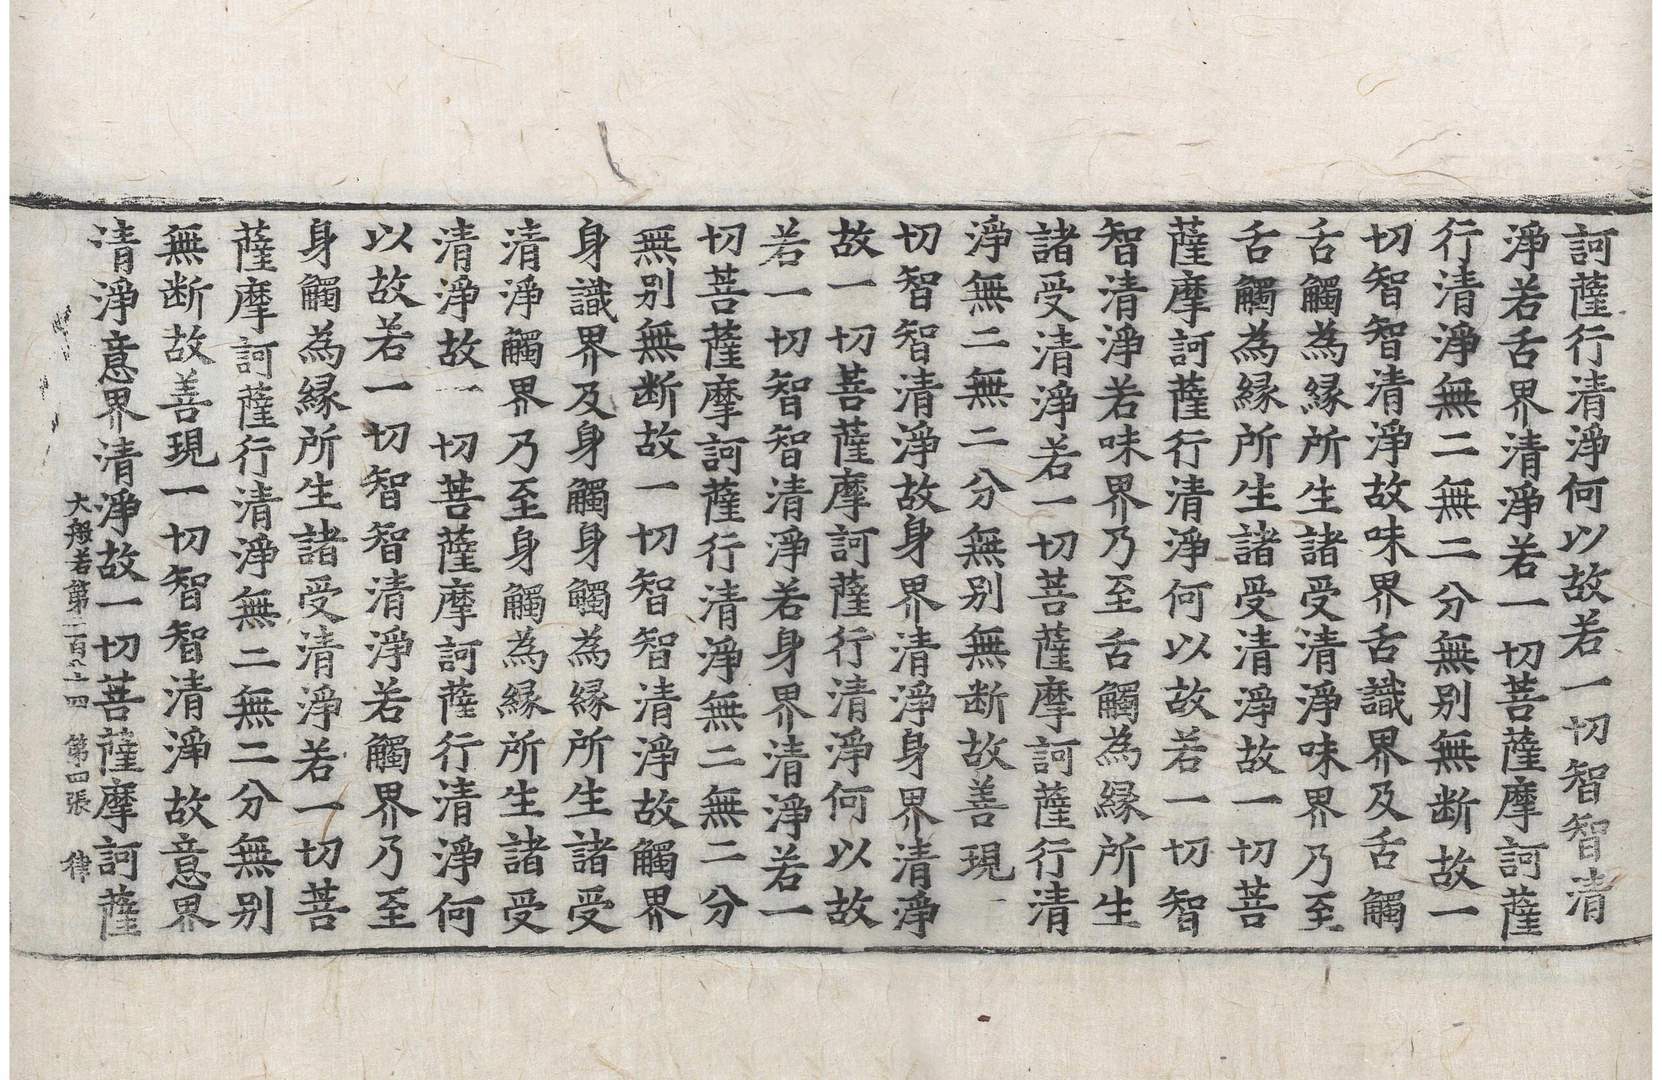 訶薩行清淨何以故若一切智智清
淨若舌界清淨若一切菩薩摩訶薩
行清淨無二無二分無別無断故一
切智智清淨故味界舌識界及舌觸
舌觸為縁所生諸受清淨味界乃至
舌觸為縁所生諸受清淨故一切菩
薩摩訶薩行清淨何以故若一切智
智清淨若味界乃至舌觸為縁所生
諸受清淨若一切菩薩摩訶薩行清
淨無二無二分無別無断故善現一
切智智清淨故身界清淨身界清淨
故一切菩薩摩訶薩行清淨何以故
若一切智智清淨若身界清淨若一
切菩薩摩訶薩行清淨無二無二分
無別無断故一切智智清淨故觸界
身識界及身觸身觸為縁所生諸受
清淨觸界乃至身觸為縁所生諸受
清淨故一切菩薩摩訶薩行清淨何
以故若一切智智清淨若觸界乃至
身觸為縁所生諸受清淨若一切菩
薩摩訶薩行清淨無二無二分無別
無断故善現一切智智清淨故意界
清淨意界清淨故一切菩薩摩訶薩
大般若第二百六十四 第四張 律